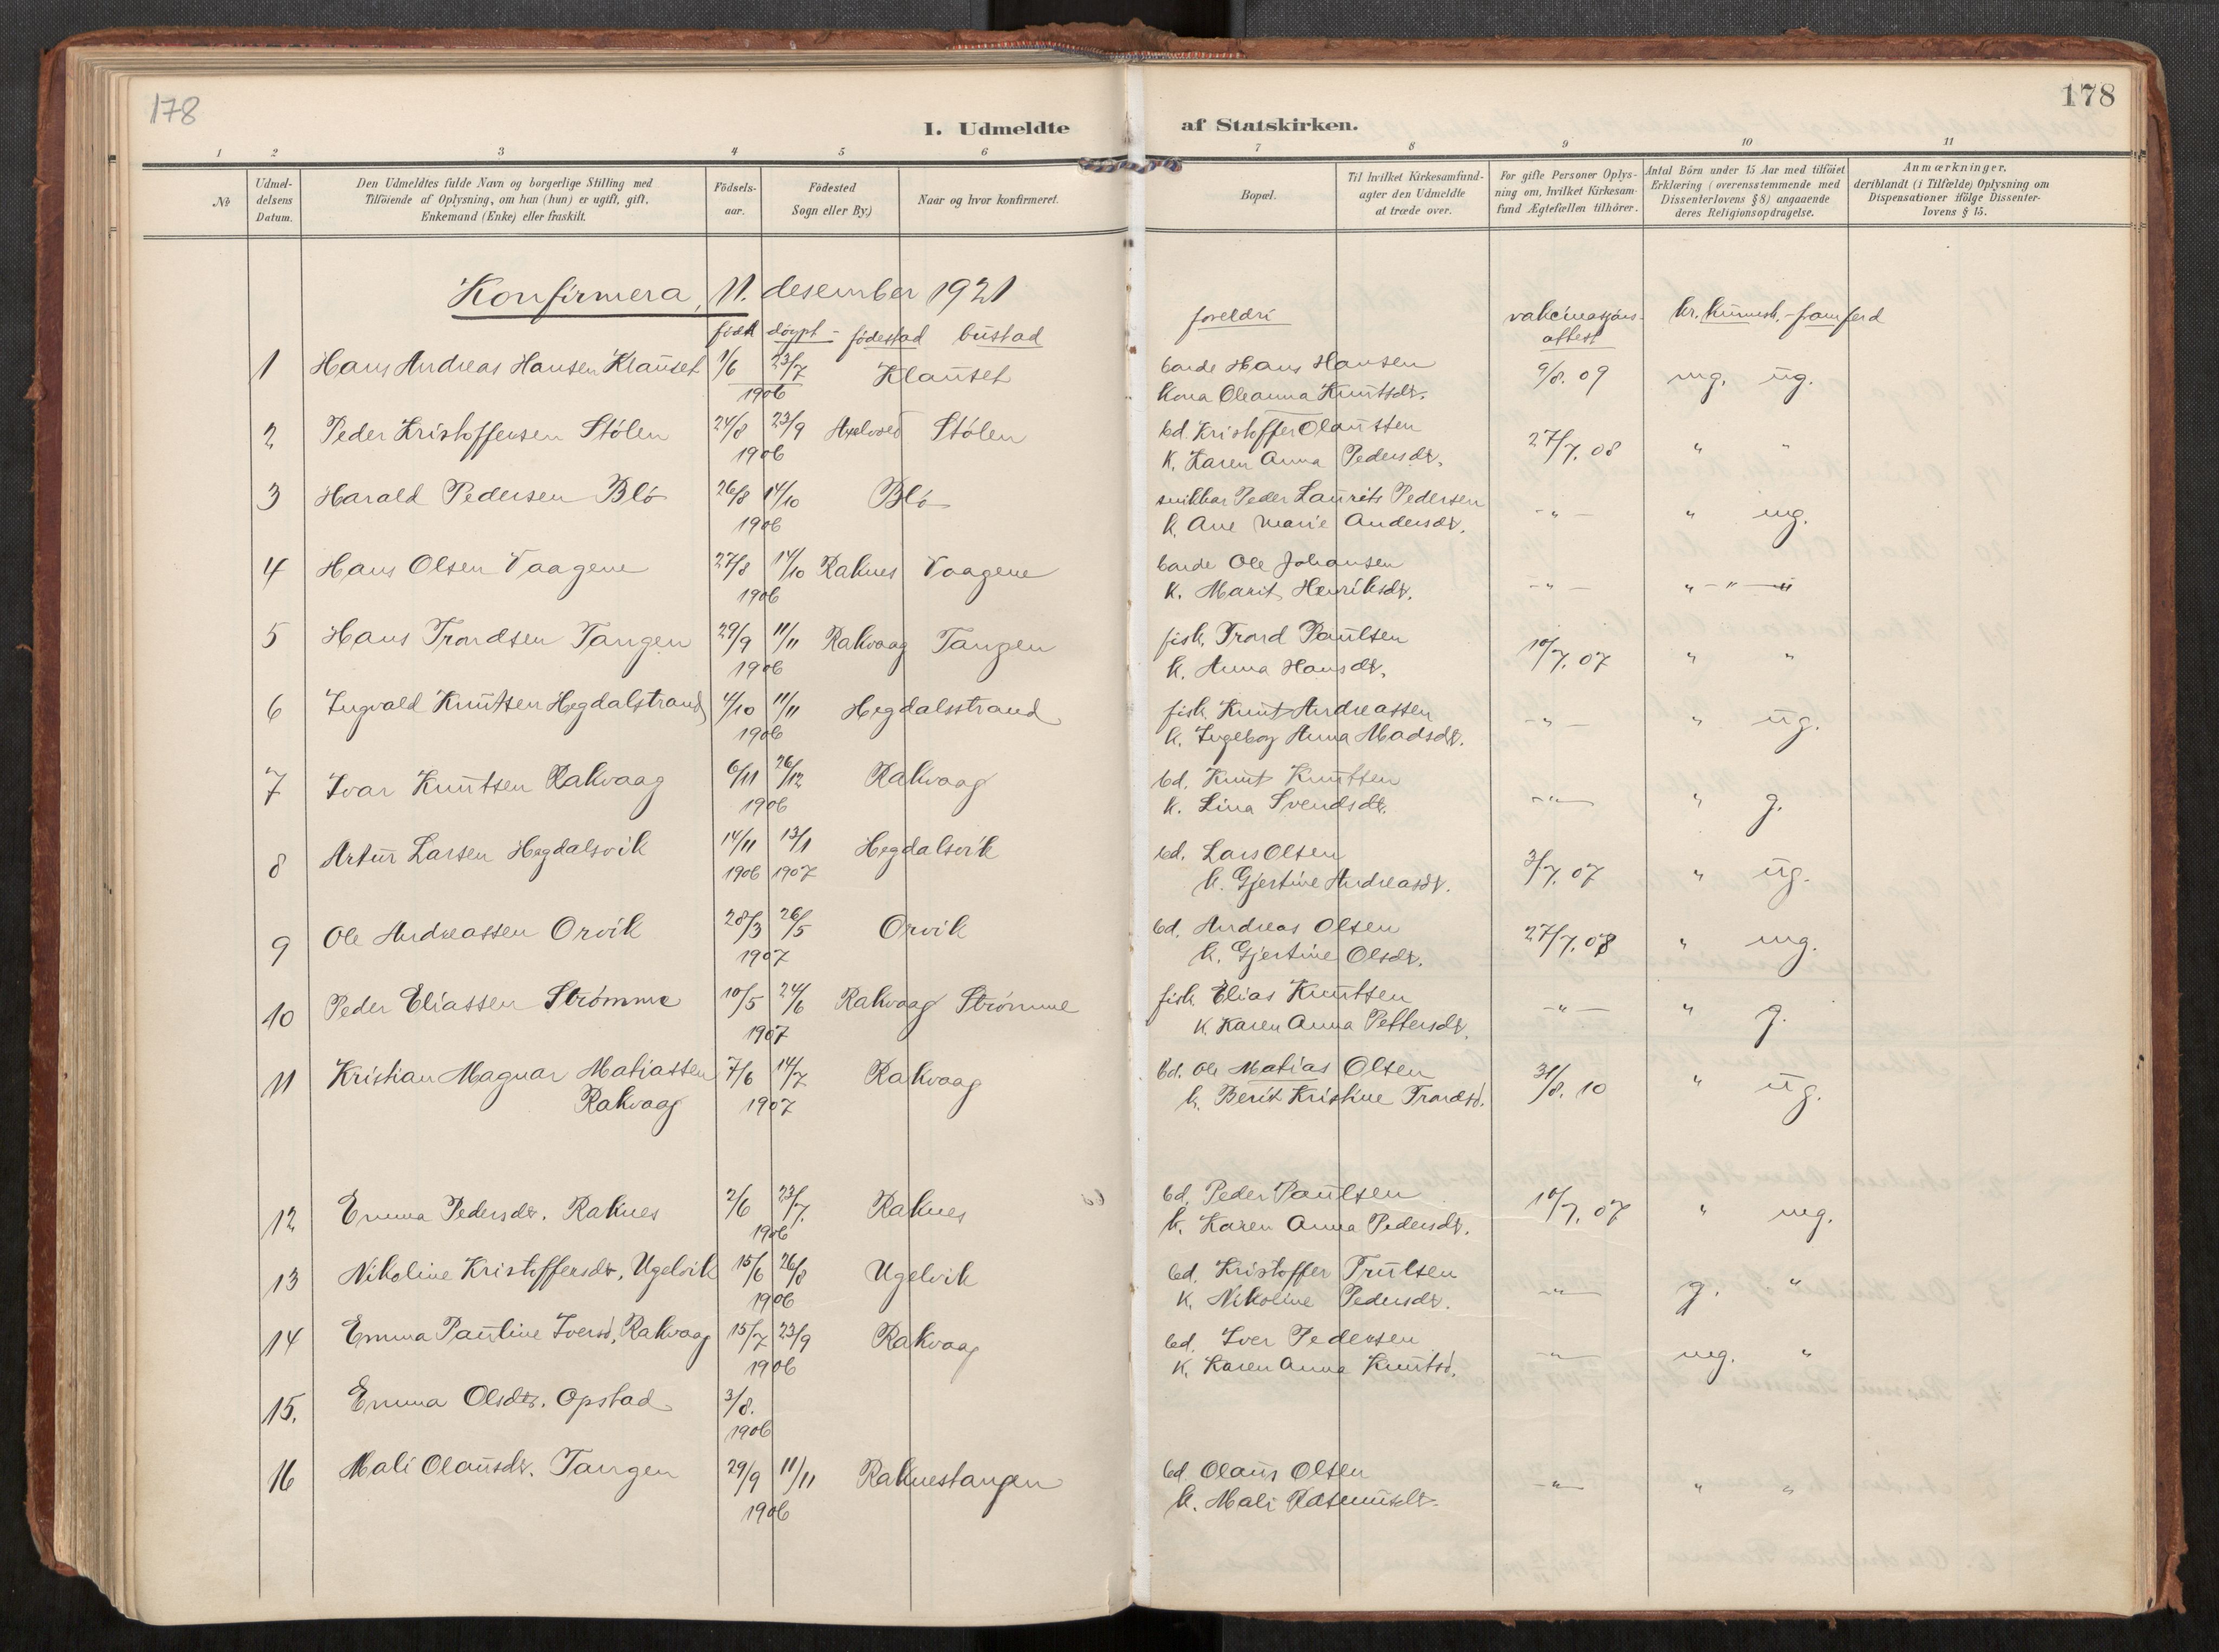 178
178
I. Udmeldte af Statskirken.
1 2 3 4 5 6 7 8 9 10 11
№
Udmel-
delsens
Datum.
Den Udmeldtes fulde Navn og borgerlige Stilling med
Tilföiende af Oplysning, om han (hun) er ugift, gift,
Enkemand (Enke) eller fraskilt.
Födsels-
aar.
Födested
Sogn eller By.)
Naar og hvor konfirmeret.
Bopæl.
Til hvilket Kirkesamfund-
agter den Udmeldte
at træde over.
For gifte Personer Oplys-
ning om, hvilket Kirkesam-
fund Ægtefællen tilhörer.
Antal Börn under 15 Aar med tilföiet
Erklæring (overensstemmende med
Dissenterlovens § 8) angaaende
deres Religionsopdragelse.
Anmærkninger,
deriblandt (i Tilfælde) Oplysning om
Dispensationer ifölge Dissenter-
lovens § 15.
Konfirmera, 11. desember 1921
født døypt - fødestad bustad foreldri vakcinasjons- kr. kunnsk. - framferd
attest
1 Hans Andreas Hansen Klauset 1/6 23/7 Klauset barde Hans Hansen 9/8. 09 mg. ug.
1906 kona Oleanna Knutsdr.
2 Peder Kristoffersen Stólen 24/8 23/9 Stólen bd. Kristoffer Olaussen 27/7. 08 " "
1906 K. Karen Anna Pedersdr.
3 Harald Pedersen Bló 26/8 14/10 Bló snikkar Peder Laurits Pedersen -"- " mg.
1906 k. Ane Marie Andersdr.
4 Hans Olsen Vaagene 27/8 14/10 Raknes Vaagene barde Ole Johansen -"- " -"- "
1906 K. Marit Henriksdr.
5 Hans Trondsen Tangen 29/9 11/11 Rakvaag Tangen fisk. Trond Paulsen 10/7. 07 " "
1906 k. Anna Hansdr.
6 Ingvald Knutsen Hegdalstrand 4/10 11/11 Hegdalsstrand fisk. Knut Andreassen -"- " ug.
1906 k. Ingeborg Anna Madsdr.
7 Ivar Knutsen Rakvaag 6/11 26/12 Rakvaag bd. Knut Knutsen -"- " g.
1906 k. Lina Svendsdr.
8 Artur Larsen Hegdalsvik 14/11 13/1 Hegdalsvik bd. Lars Olsen 3/7. 07 " ug.
1906 1907 k. Gjertine Andreasdr.
9 Ole Andreassen Orvik 28/3 26/5 Orvik bd. Andreas Olsen 27/7. 08 " mg.
1907 k. Gjertine Olsdr.
10 Peder Eliassen Strømme 10/5 24/6 Rakvaag Strømme fisk. Elias Knutsen -"- " g.
1907 K. Karen Anna Pettersdr.
11 Kristian Magnar Matiassen 7/6 14/7 Rakvaag bd. Ole Matias Olsen 31/8. 10 " ug.
Rakvaag 1907 k. Berit Kristine Trondsd.
12 Emma Pedersdr. Raknes 2/6 23/7. Raknes bd. Peder Paulsen 10/7. 07 " mg.
1906 k. Karen Anna Pedersdr.
13 Nikoline Kristoffersdr. Ugelvik 15/6 26/8 Ugelvik bd. Kristoffer Trulsen -"- g. "
1906 K. Nikoline Pedersdr.
14 Emma Pauline Iversd. Rakvaag 15/7 23/9 Rakvaag bd. Iver Pedersen -"- mg. "
1906 K. Karen Anna Knutsd.
15. Emma Olsdtr. Opstad 3/8.
1906
16 Mali Olausdr. Tangen 29/9 11/11 Raknestangen bd. Olaus Olsen -"- " "
1906 k. Mali Rasmusdr.